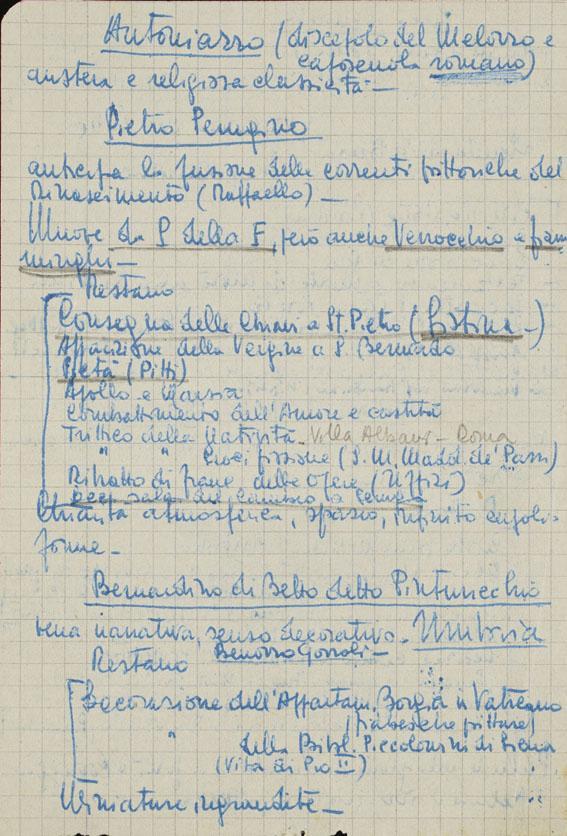 Antoniazzo (discepolo del Melozzo e
caposcuola romano)
austera e religiosa classicità —
Pietro Perugino
anticipa la fusione delle correnti pittoriche del
Rinascimento (Raffaello) —
Muove da P della F, però anche Verrocchio e fiam
minghi —
Restano
Consegna delle Chiavi a St. Pietro (Sistina —)
Apparizione della Vergine a S. Bernardo
Pietà (Pitti)
Apollo e Marsia
Combattimento dell'Amore e castità
Trittico della Natività. Villa Albani — Roma
" " Crocifissione (S. M. Madd. de' Pazzi)
Ritratto di Franc. delle Opere (Uffizi)
Dec. sala del Cambio a
Chiarità atmosferica, spazio, infinito
forme —
Bernardino di Betto detto Pinturicchio
vena narrativa, senso decorativo. Umbria
Benozzo Gozzoli —
Restano
Decorazione dell'Appartam. Borgia in Vaticano
pitture)
" della Bibl. Piccolomini di Siena
(Vita di Pio II)
Miniature ingrandite —